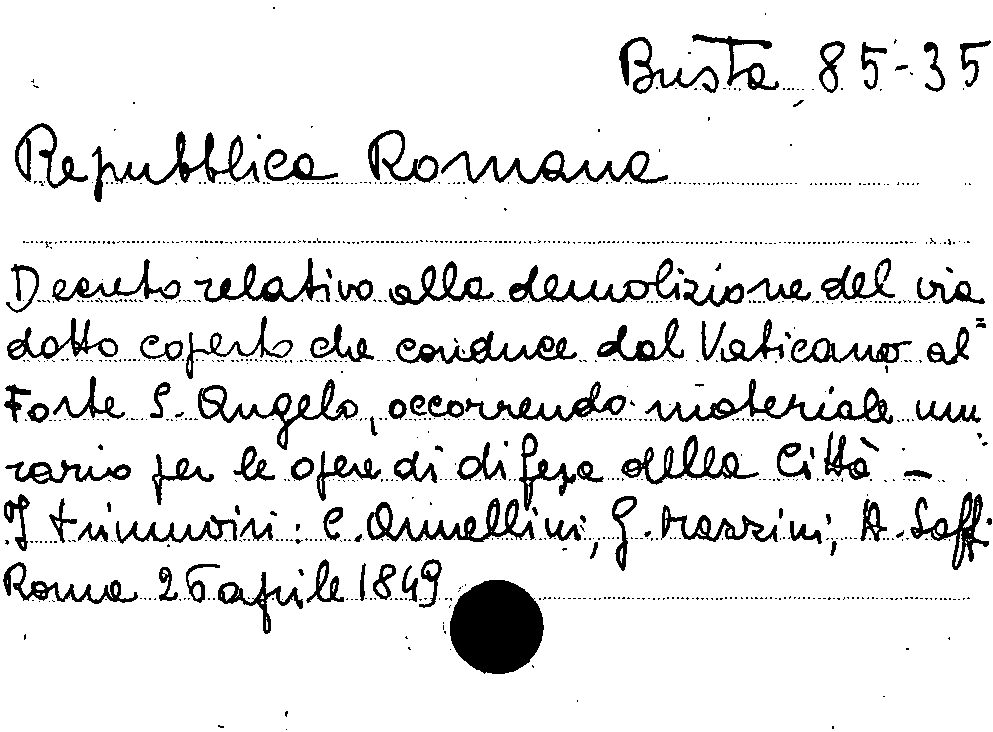 Busta 85-35
Repubblica Romana
Decreto relativo alla demolizione del via
dotto coperto che conduce dal Vaticano al=
Forte S. Angelo, occorrendo materiale mu
rario per le opere di difesa della Città -
I triumviri: C. Armellini, G. Mazzini, A. Saffi
Roma 26 aprile 1849